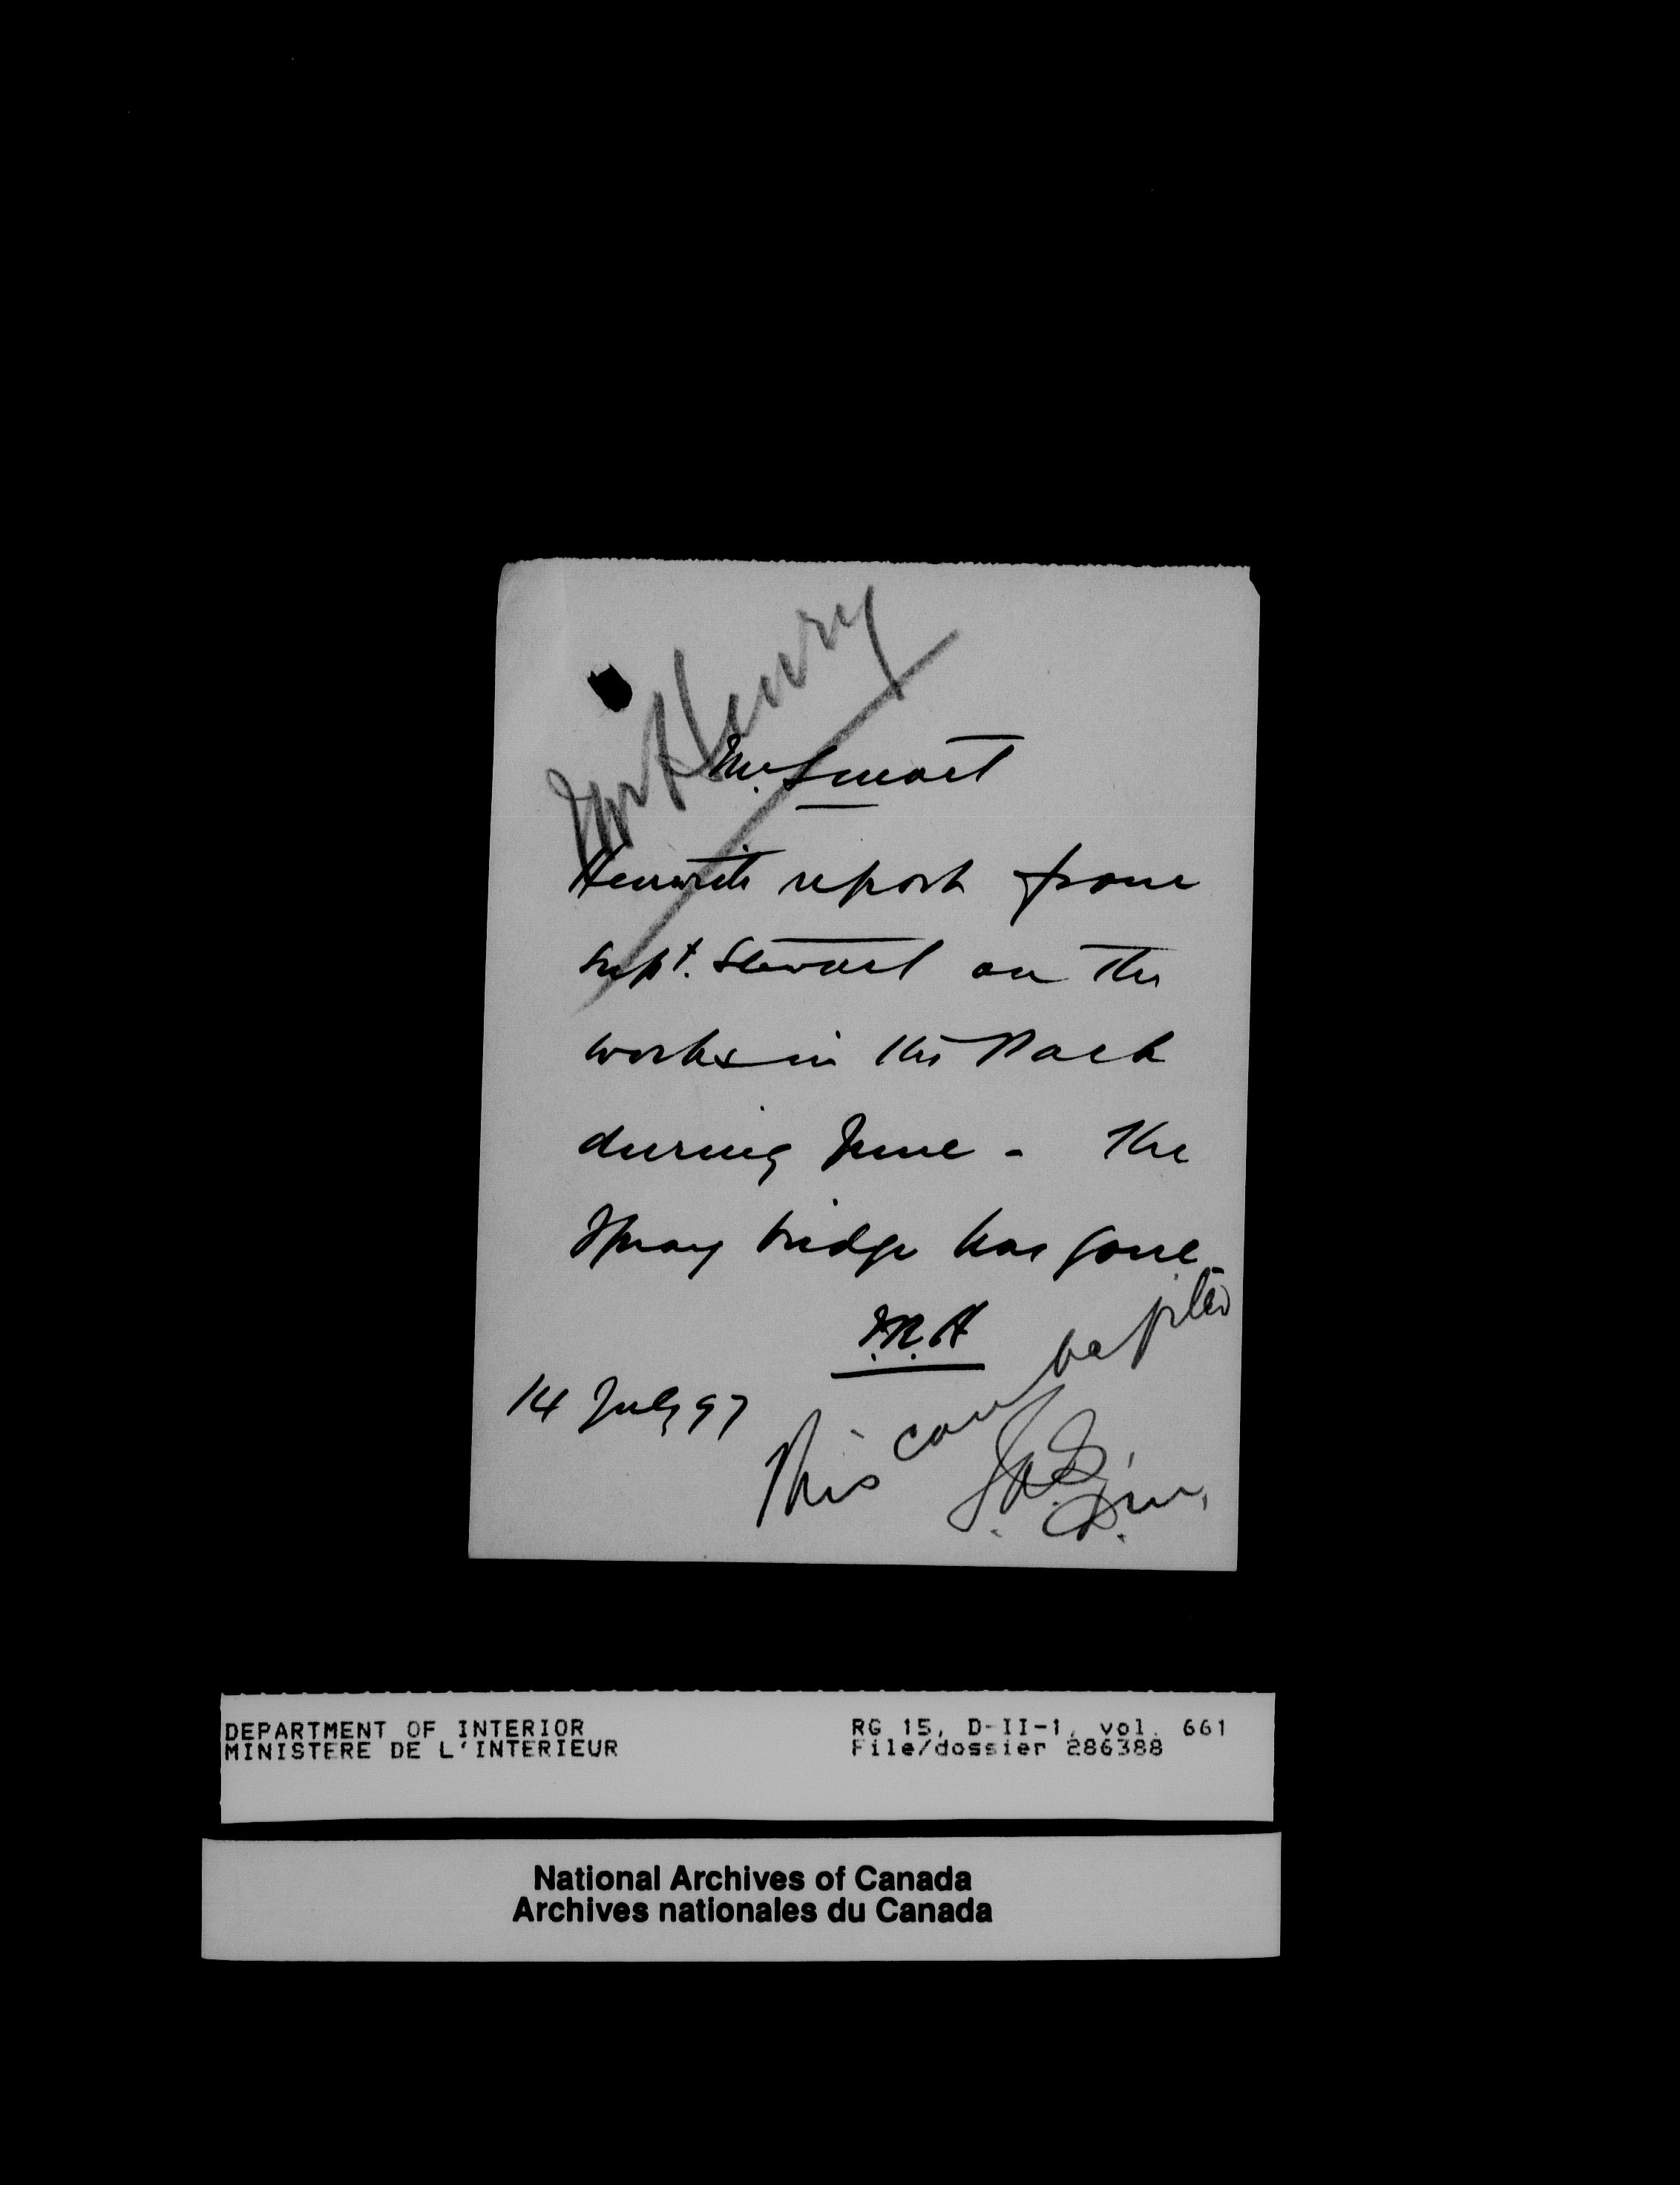 Mr Henry
Mr. Smart
Herewith report from
Supt. Stewart on the
works in the Park
during June - The
Spray bridge has gone
14 July 97
This can be filed
DEPARTMENT OF INTERIOR
MINISTERE DE L'INTERIEUR
RG 15, D-II-1, vol. 661
File/dossier 286388
National Archives of Canada
Archives nationales du Canada